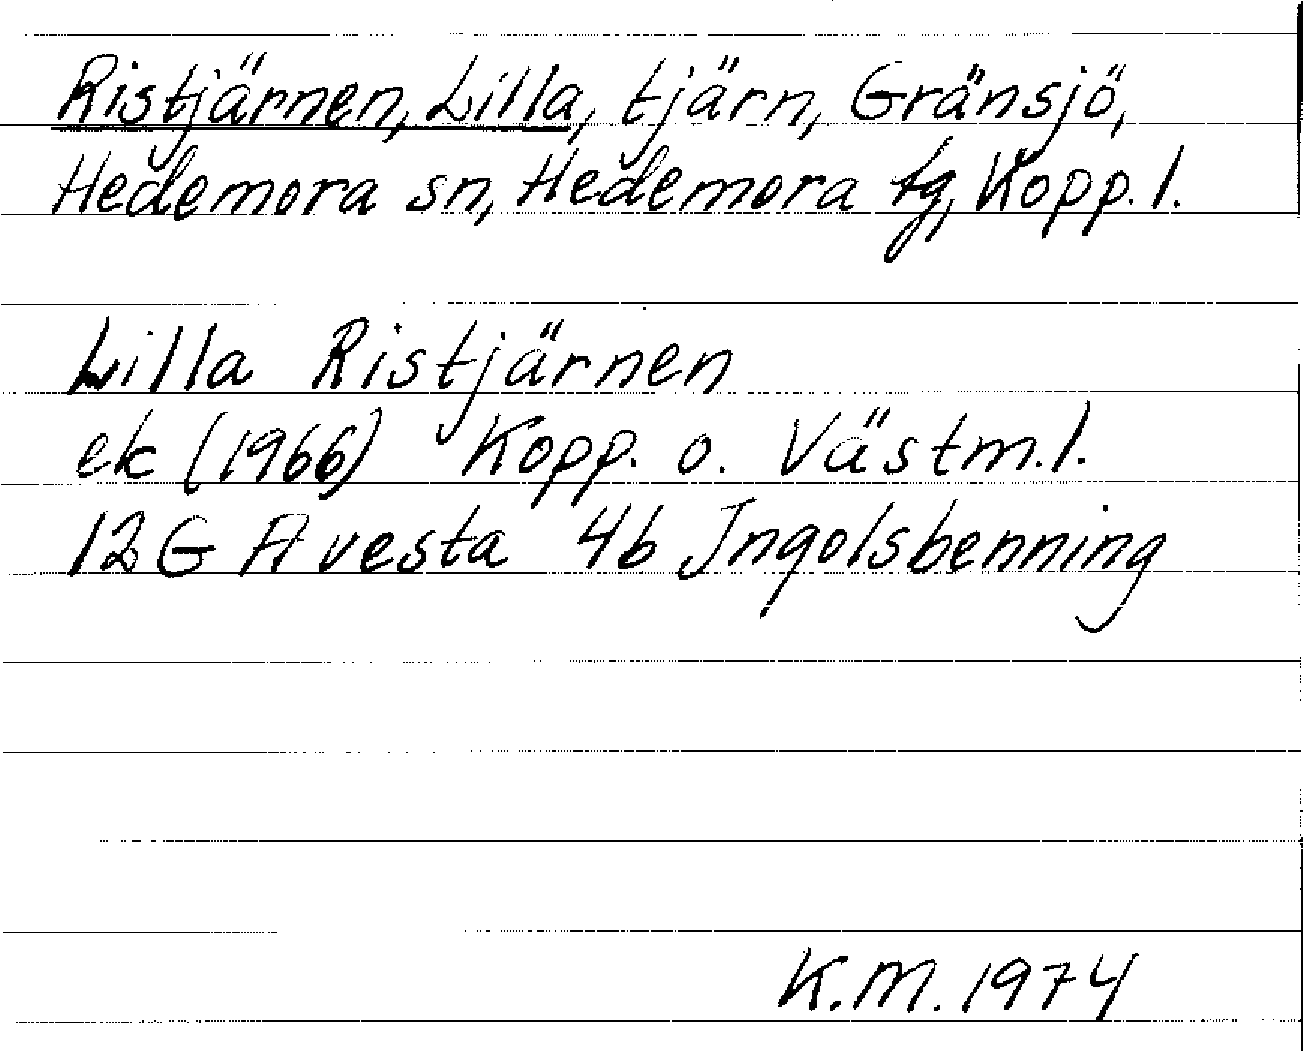 Ristjärnen, Lilla, tjärn, Gränsjö,
Hedemora sn, Hedemora tg, Kopp. l.
Lilla Ristjärnen
ek (1966) Kopp. o. Västm. l.
12G Avesta 4b Ingolsbenning
K.M. 1974